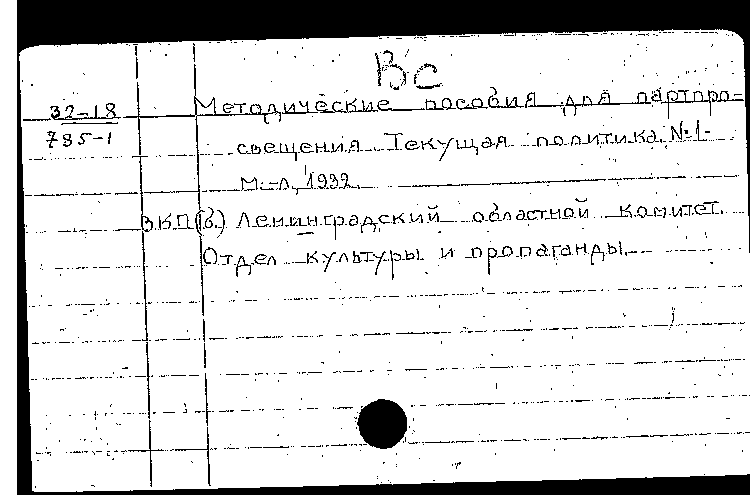 Вс
32-18
785-1
Методические пособия для партпро-
свещения. Текущая политика, № 1-
М.-Л., 1932.
ВКП(б.) Ленинградский областной комитет.
Отдел культуры и пропаганды.